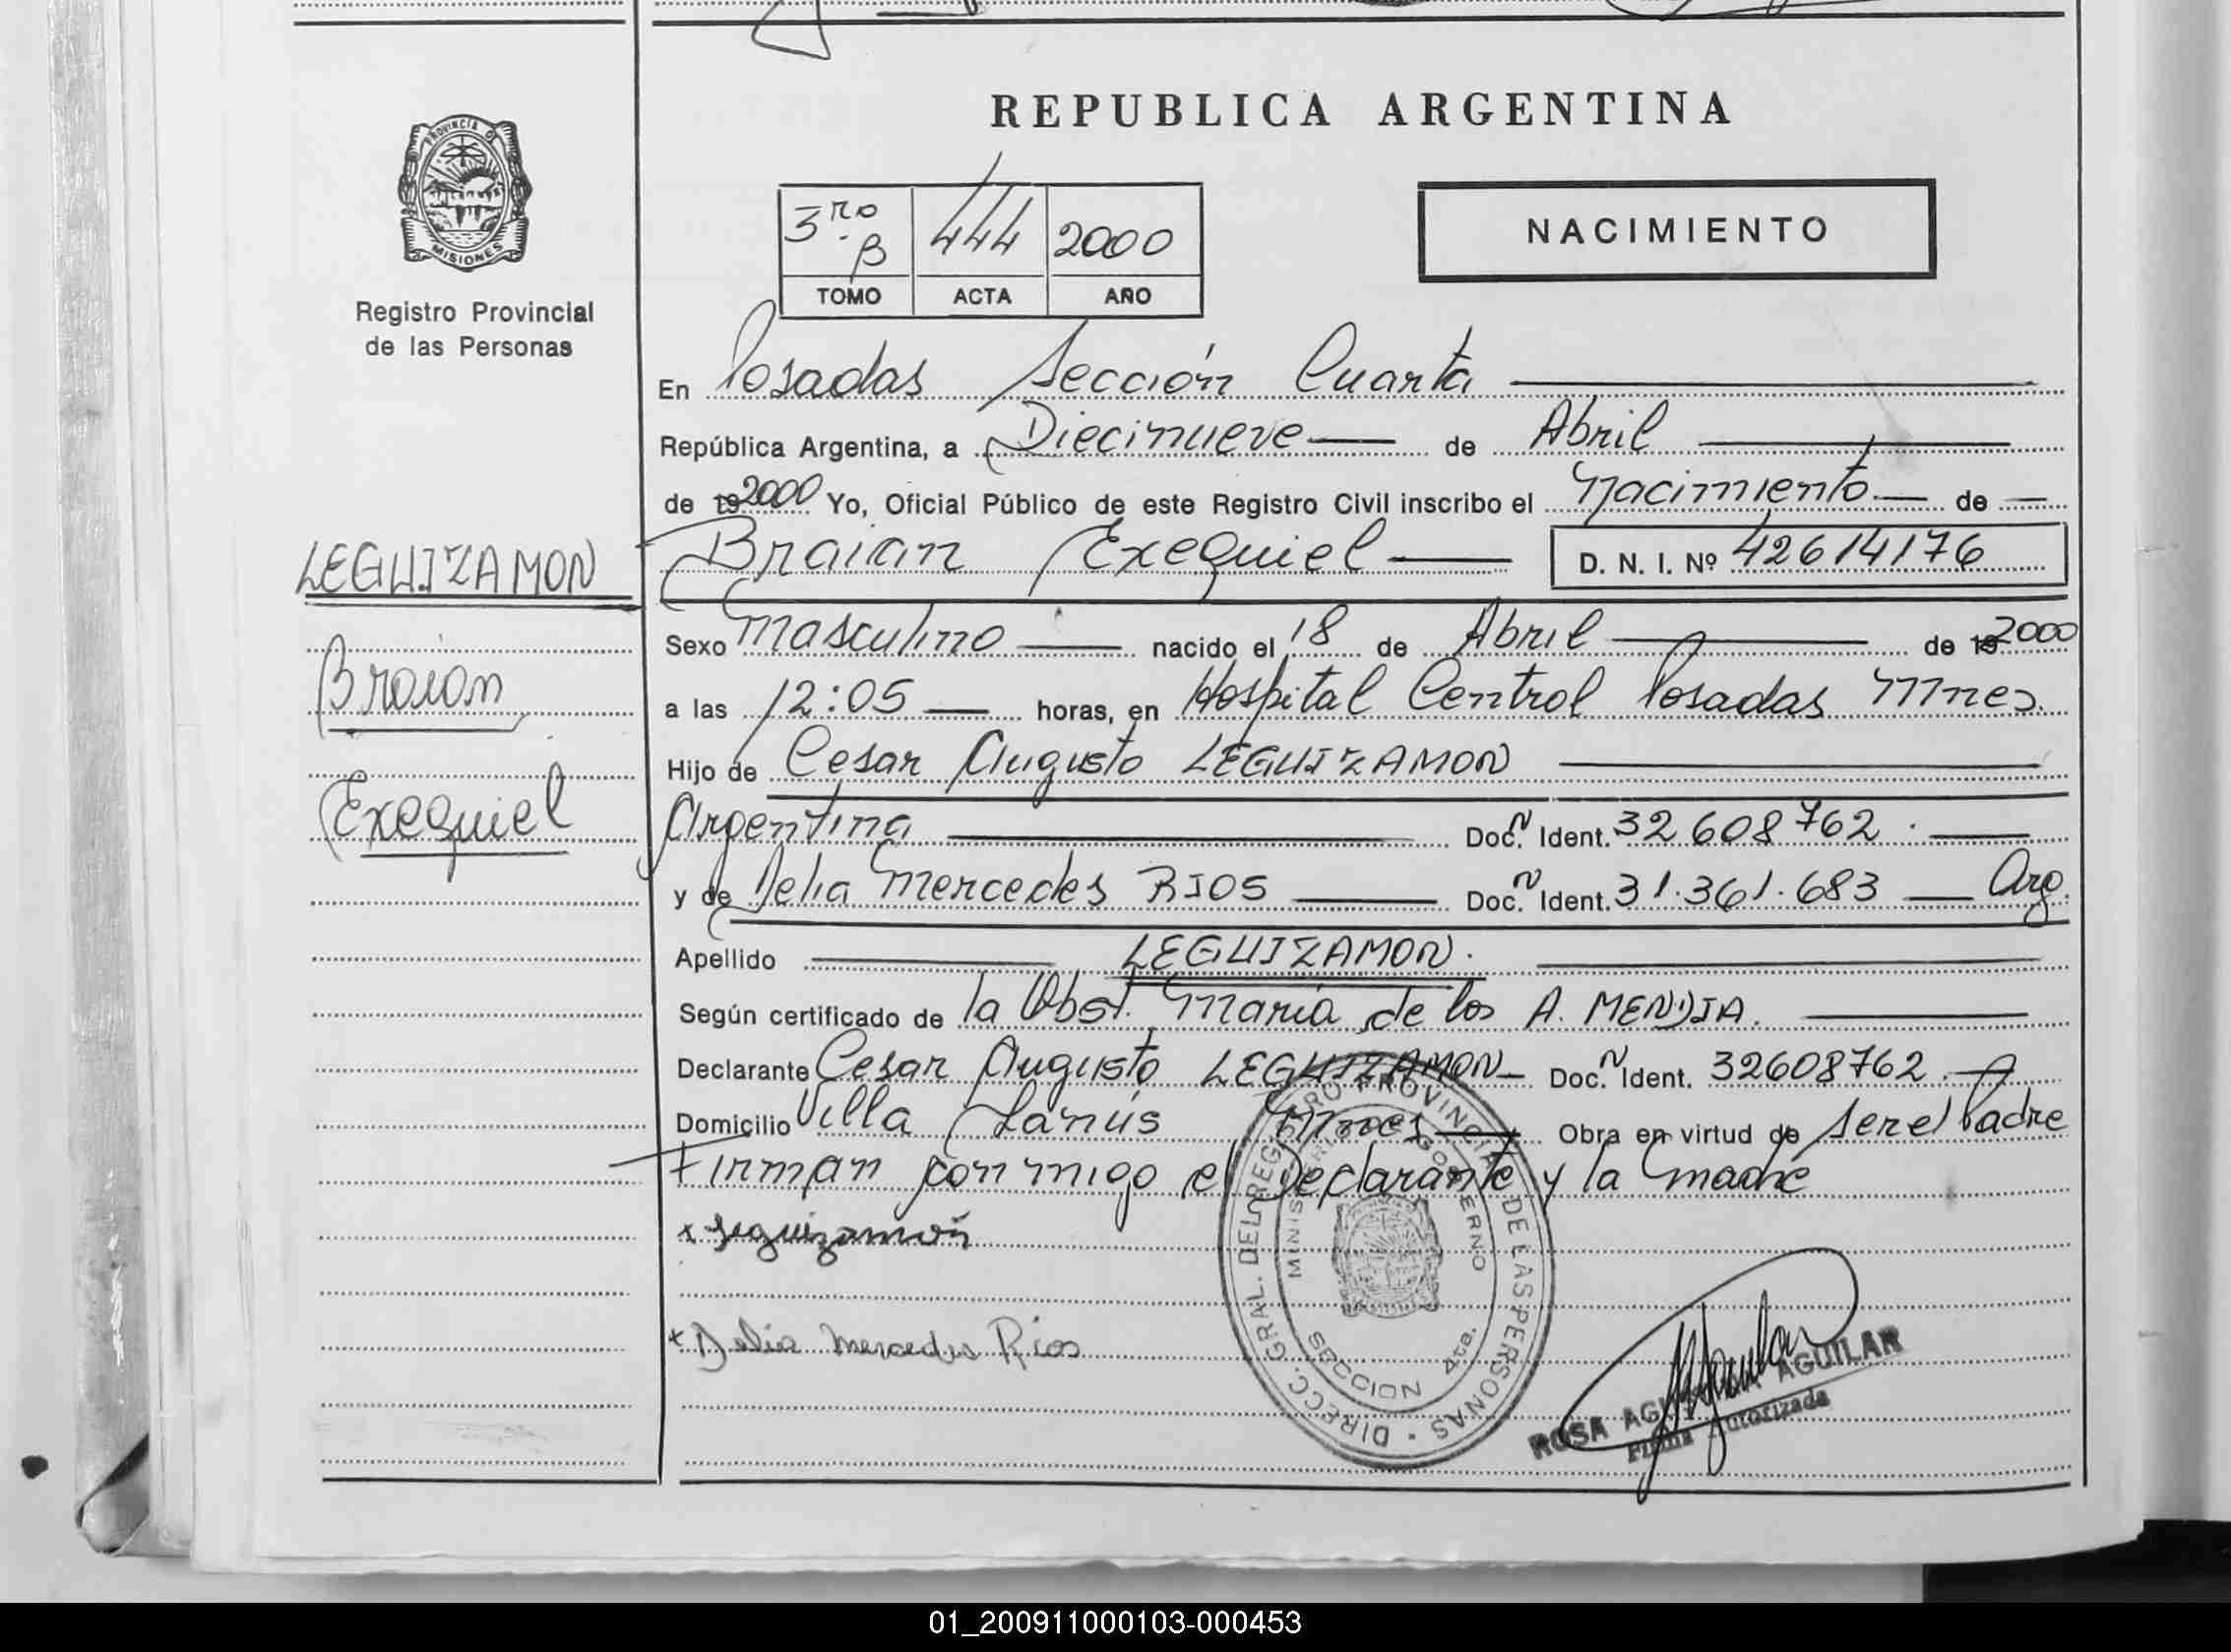 PROVINCIA DE
MISIONES
Registro Provincial
de las Personas
LEGUIZAMON
Braian
Exequiel
REPUBLICA ARGENTINA
3ro B 444 2000
TOMO ACTA AÑO
NACIMIENTO
En Posadas Sección Cuarta
República Argentina, a Diecinueve de Abril
de 19 2000 Yo, Oficial Público de este Registro Civil inscribo el Nacimiento de
Braian Exequiel D. N. I. Nº 42614176
Sexo Masculino nacido el 18 de Abril de 19 2000
a las 12:05 horas, en Hospital Central Posadas Mnes.
Hijo de Cesar Augusto LEGUIZAMON
Argentina Doc. Ident. 32.608762
y de Delia Mercedes RIOS Doc. Ident. 31.361.683 Arg.
Apellido LEGUIZAMON.
Según certificado de la Obst. Maria de los A. MENDIA.
Declarante Cesar Augusto LEGUIZAMON Doc. Ident. 32608762.
Domicilio Villa Lanús Mnes Obra en virtud de ser el Padre
Firman conmigo el Declarante y la Madre
x Leguizamón
x Delia Mercedes Rios
DIRECC. GRAL. DEL REGISTRO PROVINCIAL DE LAS PERSONAS
MINISTERIO DE GOBIERNO
SECCION 4ta.
ROSA AGUILAR
Firma Autorizada
01_200911000103-000453